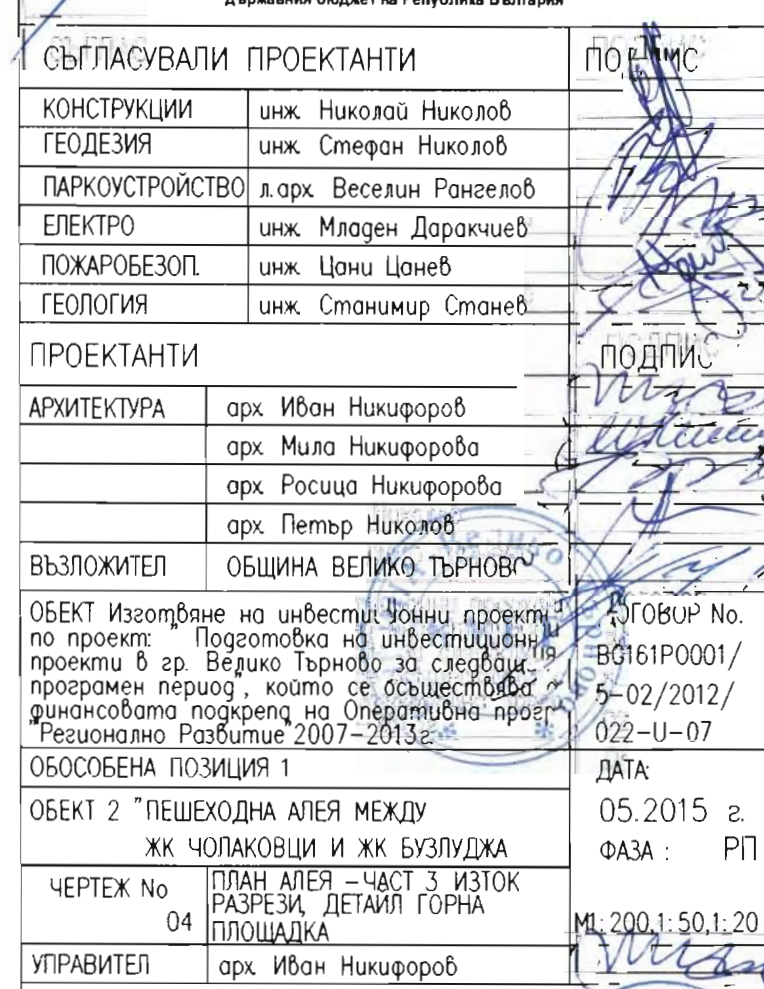 държавния бюджет на Република България
СЪГЛАСУВАЛИ ПРОЕКТАНТИ ПОДПИС
КОНСТРУКЦИИ инж. Николай Николов
ГЕОДЕЗИЯ инж. Стефан Николов
ПАРКОУСТРОЙСТВО л.арх. Веселин Рангелов
ЕЛЕКТРО инж. Младен Даракчиев
ПОЖАРОБЕЗОП. инж. Цани Цанев
ГЕОЛОГИЯ инж. Станимир Станев
ПРОЕКТАНТИ ПОДПИС
АРХИТЕКТУРА арх. Иван Никифоров
арх. Мила Никифорова
арх. Росица Никифорова
арх. Петър Николов
ВЪЗЛОЖИТЕЛ ОБЩИНА ВЕЛИКО ТЪРНОВО
ОБЕКТ Изготвяне на инвестиционни проекти
по проект: " Подготовка на инвестиционни
проекти в гр. Велико Търново за следващ
програмен период", който се осъществява с
финансовата подкрепа на Оперативна прогр
"Регионално Развитие"2007-2013г.
ДОГОВОР No.
BG161PO001/
5-02/2012/
022-U-07
ОБОСОБЕНА ПОЗИЦИЯ 1
ДАТА:
05.2015 г.
ОБЕКТ 2 "ПЕШЕХОДНА АЛЕЯ МЕЖДУ
ЖК ЧОЛАКОВЦИ И ЖК БУЗЛУДЖА
ФАЗА : РП
ЧЕРТЕЖ No
04
ПЛАН АЛЕЯ -ЧАСТ 3 ИЗТОК
РАЗРЕЗИ, ДЕТАЙЛ ГОРНА
ПЛОЩАДКА
М1:200,1:50,1:20
УПРАВИТЕЛ арх. Иван Никифоров